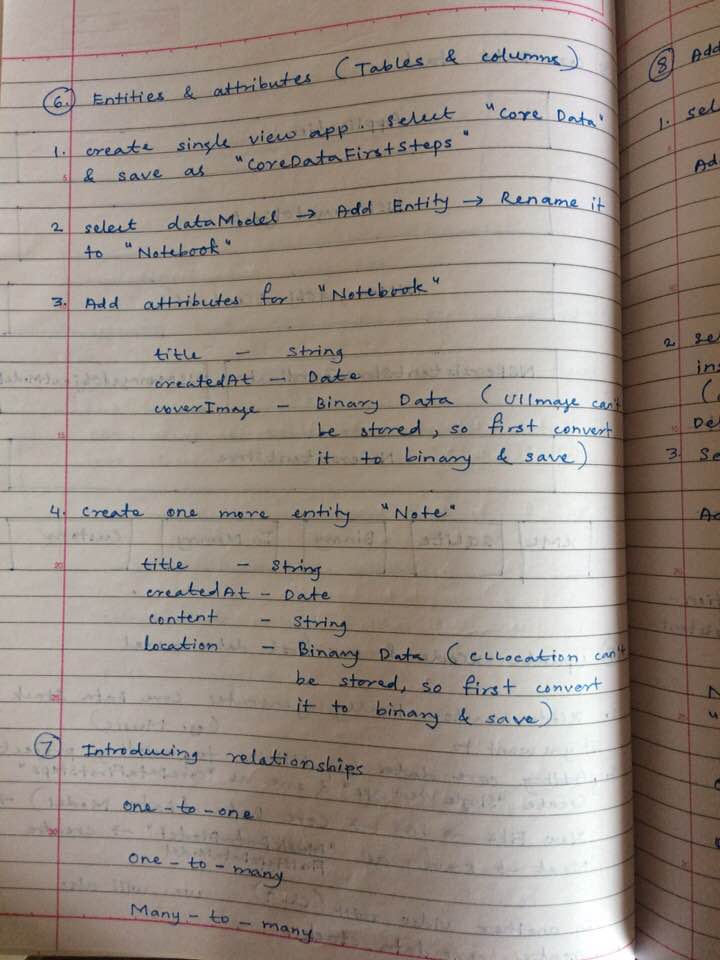 6. Entities & attributes (Tables & columns)
1. create single view app. select "Core Data"
& save as "CoreDataFirstSteps"
2 select dataModel → Add Entity → Rename it
to "Notebook"
3. Add attributes for "Notebook"
title - String
createdAt - Date
coverImage - Binary Data (UIImage can't
be stored, so first convert
it to binary & save)
4. create one more entity "Note"
title - String
createdAt - Date
content - String
location - Binary Data (CLLocation can't
be stored, so first convert
it to binary & save)
7 Introducing relationships
one-to-one
One-to-many
Many-to-many
8 Add
1. sel
Ad
2 se
ins
De
3 Se
Ad